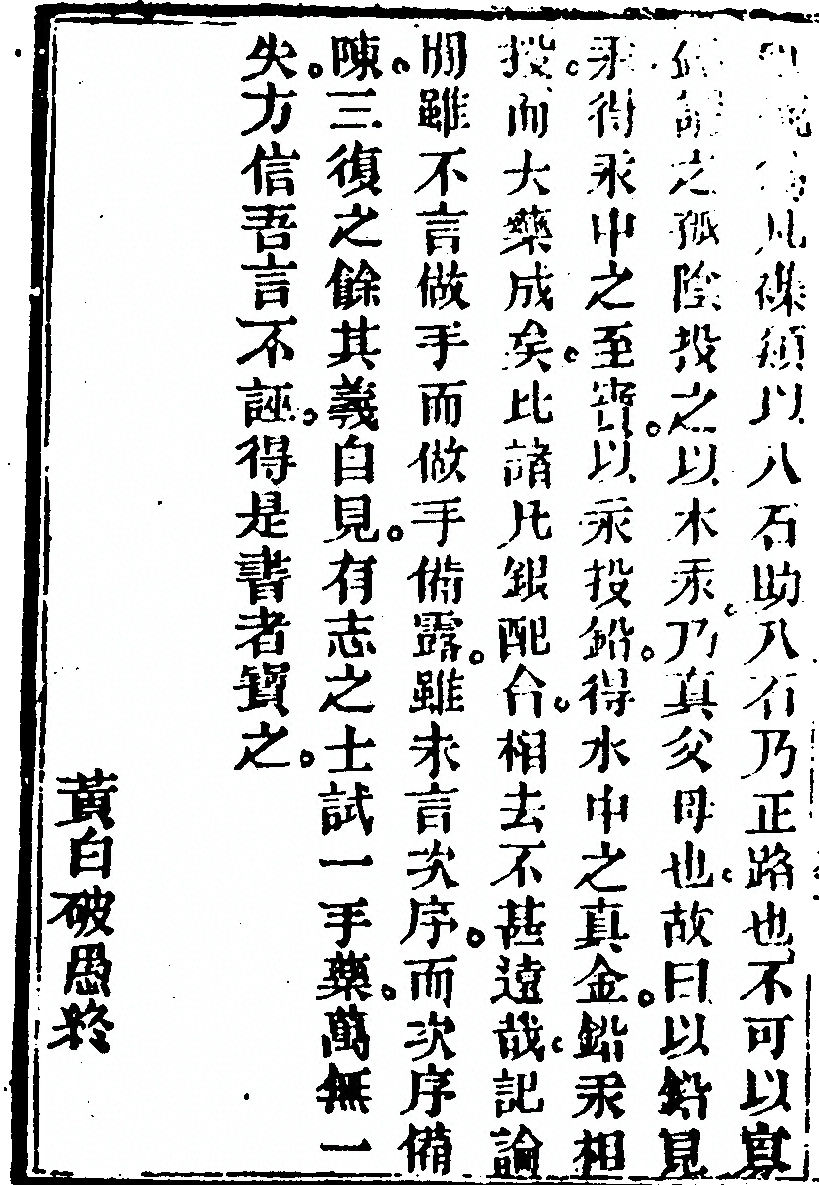 凡硃須以八石助八石乃正路也不可以寡
之孤陰投之以木汞乃真父母也故曰以鉛見
汞得汞中之至寳以汞投鉛得水中之真金鉛汞相
投而大藥成矣比諸凡銀配合相去不甚遠哉記論
閒雖不言做手而做手備露雖未言次序而次序備
陳三復之餘其義自見有志之士試一手藥萬無一
失方信吾言不誣得是書者寳之
黃白破愚終